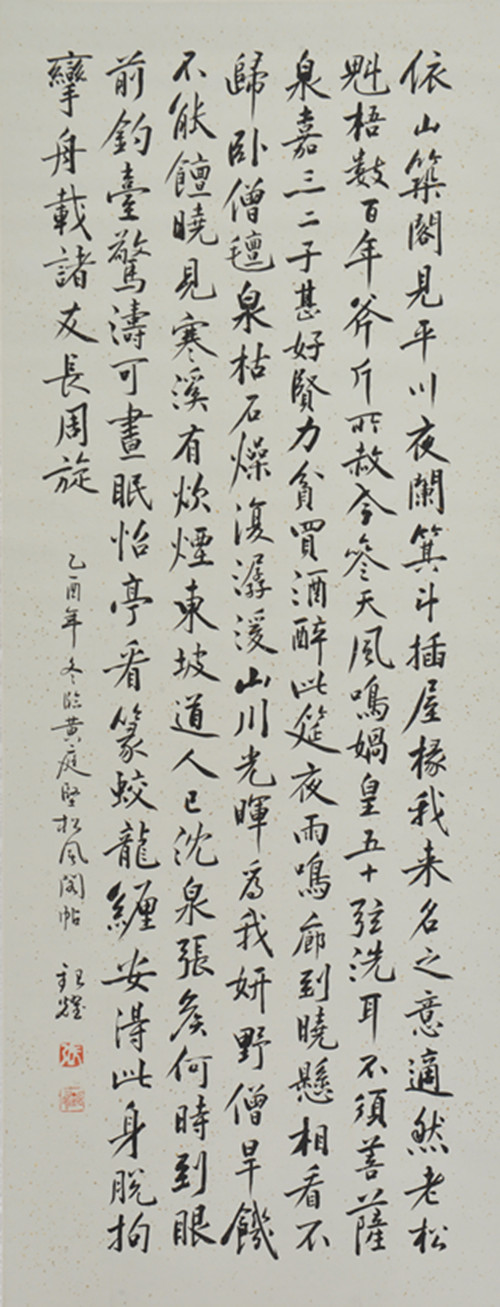 依山築閣見平川夜闌箕斗插屋椽我来名之意適然老松
魁梧數百年斧斤所赦今參天風鳴媧皇五十弦洗耳不須菩薩
泉嘉三二子甚好賢力貧買酒醉此筵夜雨鳴廊到曉懸相看不
歸卧僧氊泉枯石燥復潺湲山川光暉為我妍野僧旱饑
不能饘曉見寒溪有炊煙東坡道人已沈泉張矦何時到眼
前釣臺驚濤可晝眠怡亭看篆蛟龍纏安得此身脫拘
攣舟載諸友長周旋
乙酉年冬臨黃庭堅松風閣帖